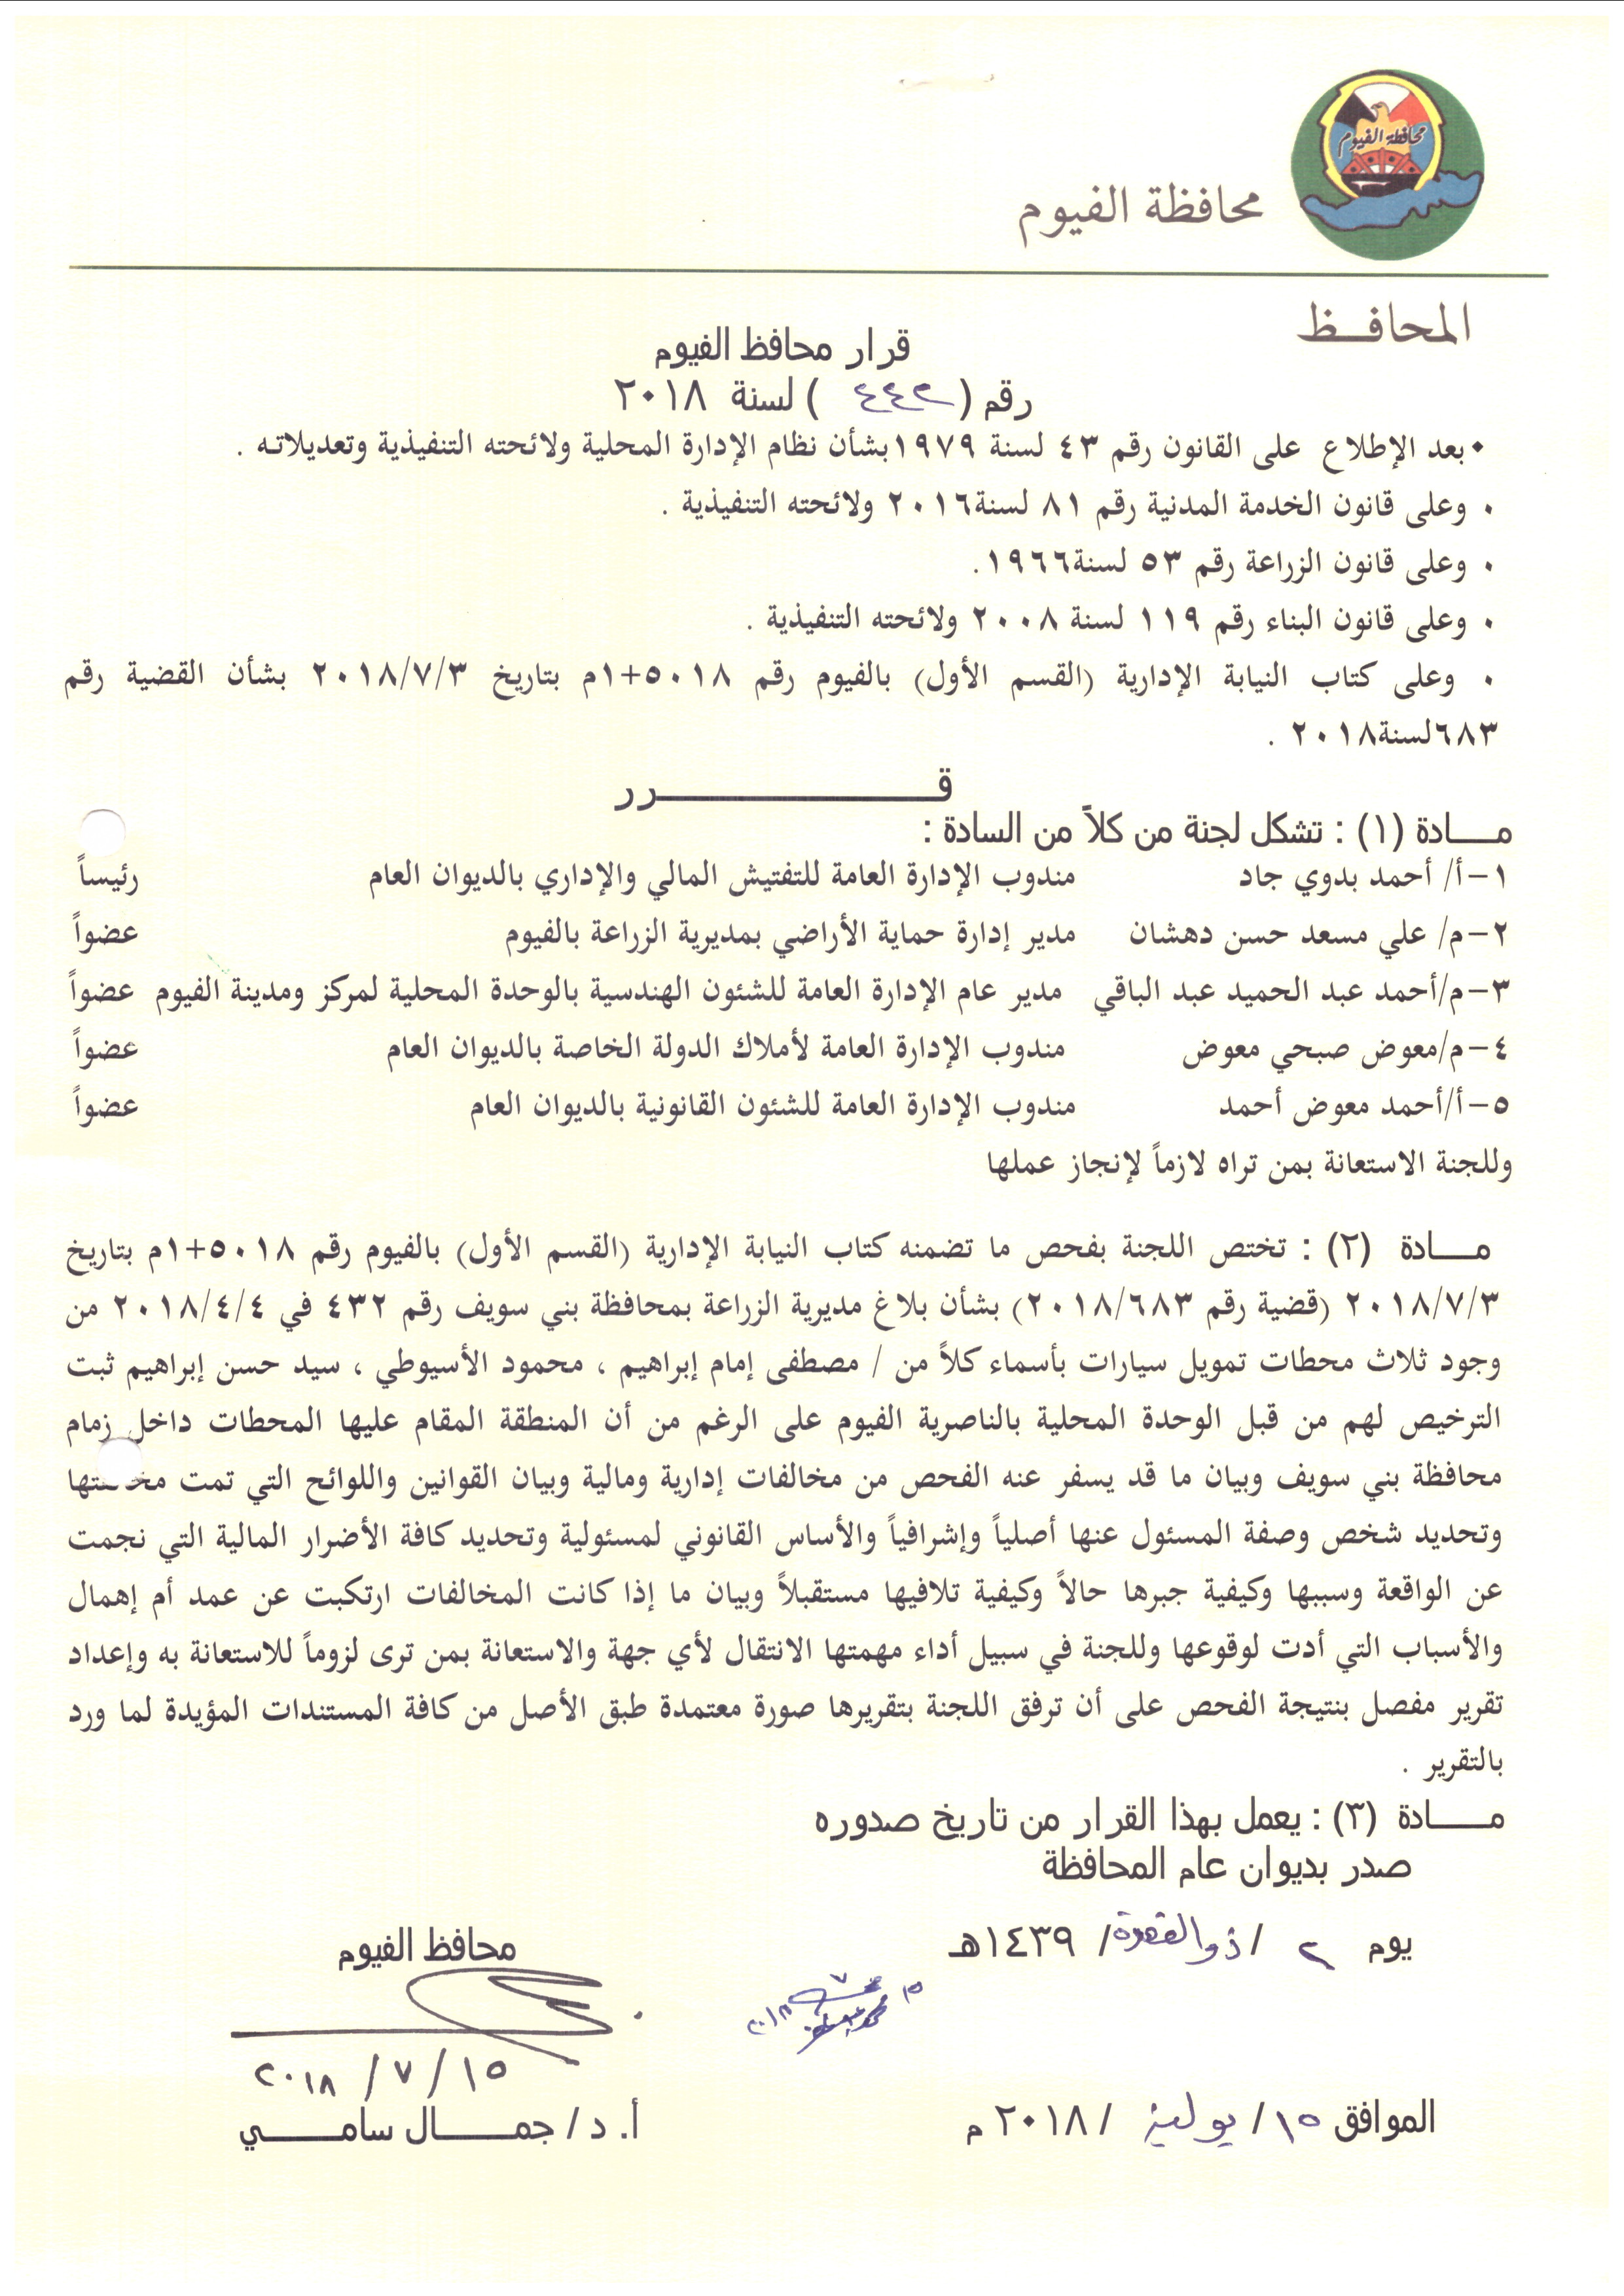 محافظة الفيوم
محافظة الفيوم
المحافــظ
قرار محافظ الفيوم
رقم ( ٤٤٢ ) لسنة ٢٠١٨
• بعد الإطلاع على القانون رقم ٤٣ لسنة ١٩٧٩بشأن نظام الإدارة المحلية ولائحته التنفيذية وتعديلاته .
• وعلى قانون الخدمة المدنية رقم ٨١ لسنة٢٠١٦ ولائحته التنفيذية .
• وعلى قانون الزراعة رقم ٥٣ لسنة١٩٦٦.
• وعلى قانون البناء رقم ١١٩ لسنة ٢٠٠٨ ولائحته التنفيذية .
• وعلى كتاب النيابة الإدارية (القسم الأول) بالفيوم رقم ٥٠١٨+١م بتاريخ ٢٠١٨/٧/٣ بشأن القضية رقم
٦٨٣لسنة٢٠١٨ .
قــــــــــــرر
مــــادة (١) : تشكل لجنة من كلاً من السادة :
١-أ/ أحمد بدوي جاد مندوب الإدارة العامة للتفتيش المالي والإداري بالديوان العام رئيساً
٢-م/ علي مسعد حسن دهشان مدير إدارة حماية الأراضي بمديرية الزراعة بالفيوم عضواً
٣-م/أحمد عبد الحميد عبد الباقي مدير عام الإدارة العامة للشئون الهندسية بالوحدة المحلية لمركز ومدينة الفيوم عضواً
٤-م/معوض صبحي معوض مندوب الإدارة العامة لأملاك الدولة الخاصة بالديوان العام عضواً
٥-أ/أحمد معوض أحمد مندوب الإدارة العامة للشئون القانونية بالديوان العام عضواً
وللجنة الاستعانة بمن تراه لازماً لإنجاز عملها
مــــادة (٢) : تختص اللجنة بفحص ما تضمنه كتاب النيابة الإدارية (القسم الأول) بالفيوم رقم ٥٠١٨+١م بتاريخ
٢٠١٨/٧/٣ (قضية رقم ٢٠١٨/٦٨٣) بشأن بلاغ مديرية الزراعة بمحافظة بني سويف رقم ٤٣٢ في ٢٠١٨/٤/٤ من
وجود ثلاث محطات تمويل سيارات بأسماء كلاً من / مصطفى إمام إبراهيم ، محمود الأسيوطي ، سيد حسن إبراهيم ثبت
الترخيص لهم من قبل الوحدة المحلية بالناصرية الفيوم على الرغم من أن المنطقة المقام عليها المحطات داخل زمام
محافظة بني سويف وبيان ما قد يسفر عنه الفحص من مخالفات إدارية ومالية وبيان القوانين واللوائح التي تمت
وتحديد شخص وصفة المسئول عنها أصلياً وإشرافياً والأساس القانوني لمسئولية وتحديد كافة الأضرار المالية التي نجمت
عن الواقعة وسببها وكيفية جبرها حالاً وكيفية تلافيها مستقبلاً وبيان ما إذا كانت المخالفات ارتكبت عن عمد أم إهمال
والأسباب التي أدت لوقوعها وللجنة في سبيل أداء مهمتها الانتقال لأي جهة والاستعانة بمن ترى لزوماً للاستعانة به وإعداد
تقرير مفصل بنتيجة الفحص على أن ترفق اللجنة بتقريرها صورة معتمدة طبق الأصل من كافة المستندات المؤيدة لما ورد
بالتقرير .
مــــادة (٣) : يعمل بهذا القرار من تاريخ صدوره
صدر بديوان عام المحافظة
يوم ٢ / ذو القعدة/ ١٤٣٩هـ
محافظ الفيوم
١٥ ٧ ٢٠١٨
١٥ / ٧ / ٢٠١٨
الموافق ١٥/ يوليو / ٢٠١٨ م
أ. د/ جمــــال سامــــي